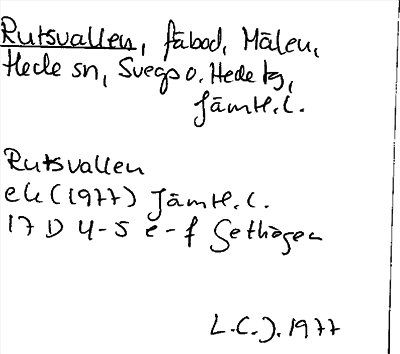 Rutsvallen, fäbod, Målen,
Hede sn, Svegs o. Hede tg,
Jämtl. l.
Rutsvallen
ek (1977) Jämtl. l.
17 D 4-5 e-f Gethågen
L.C.J. 1977